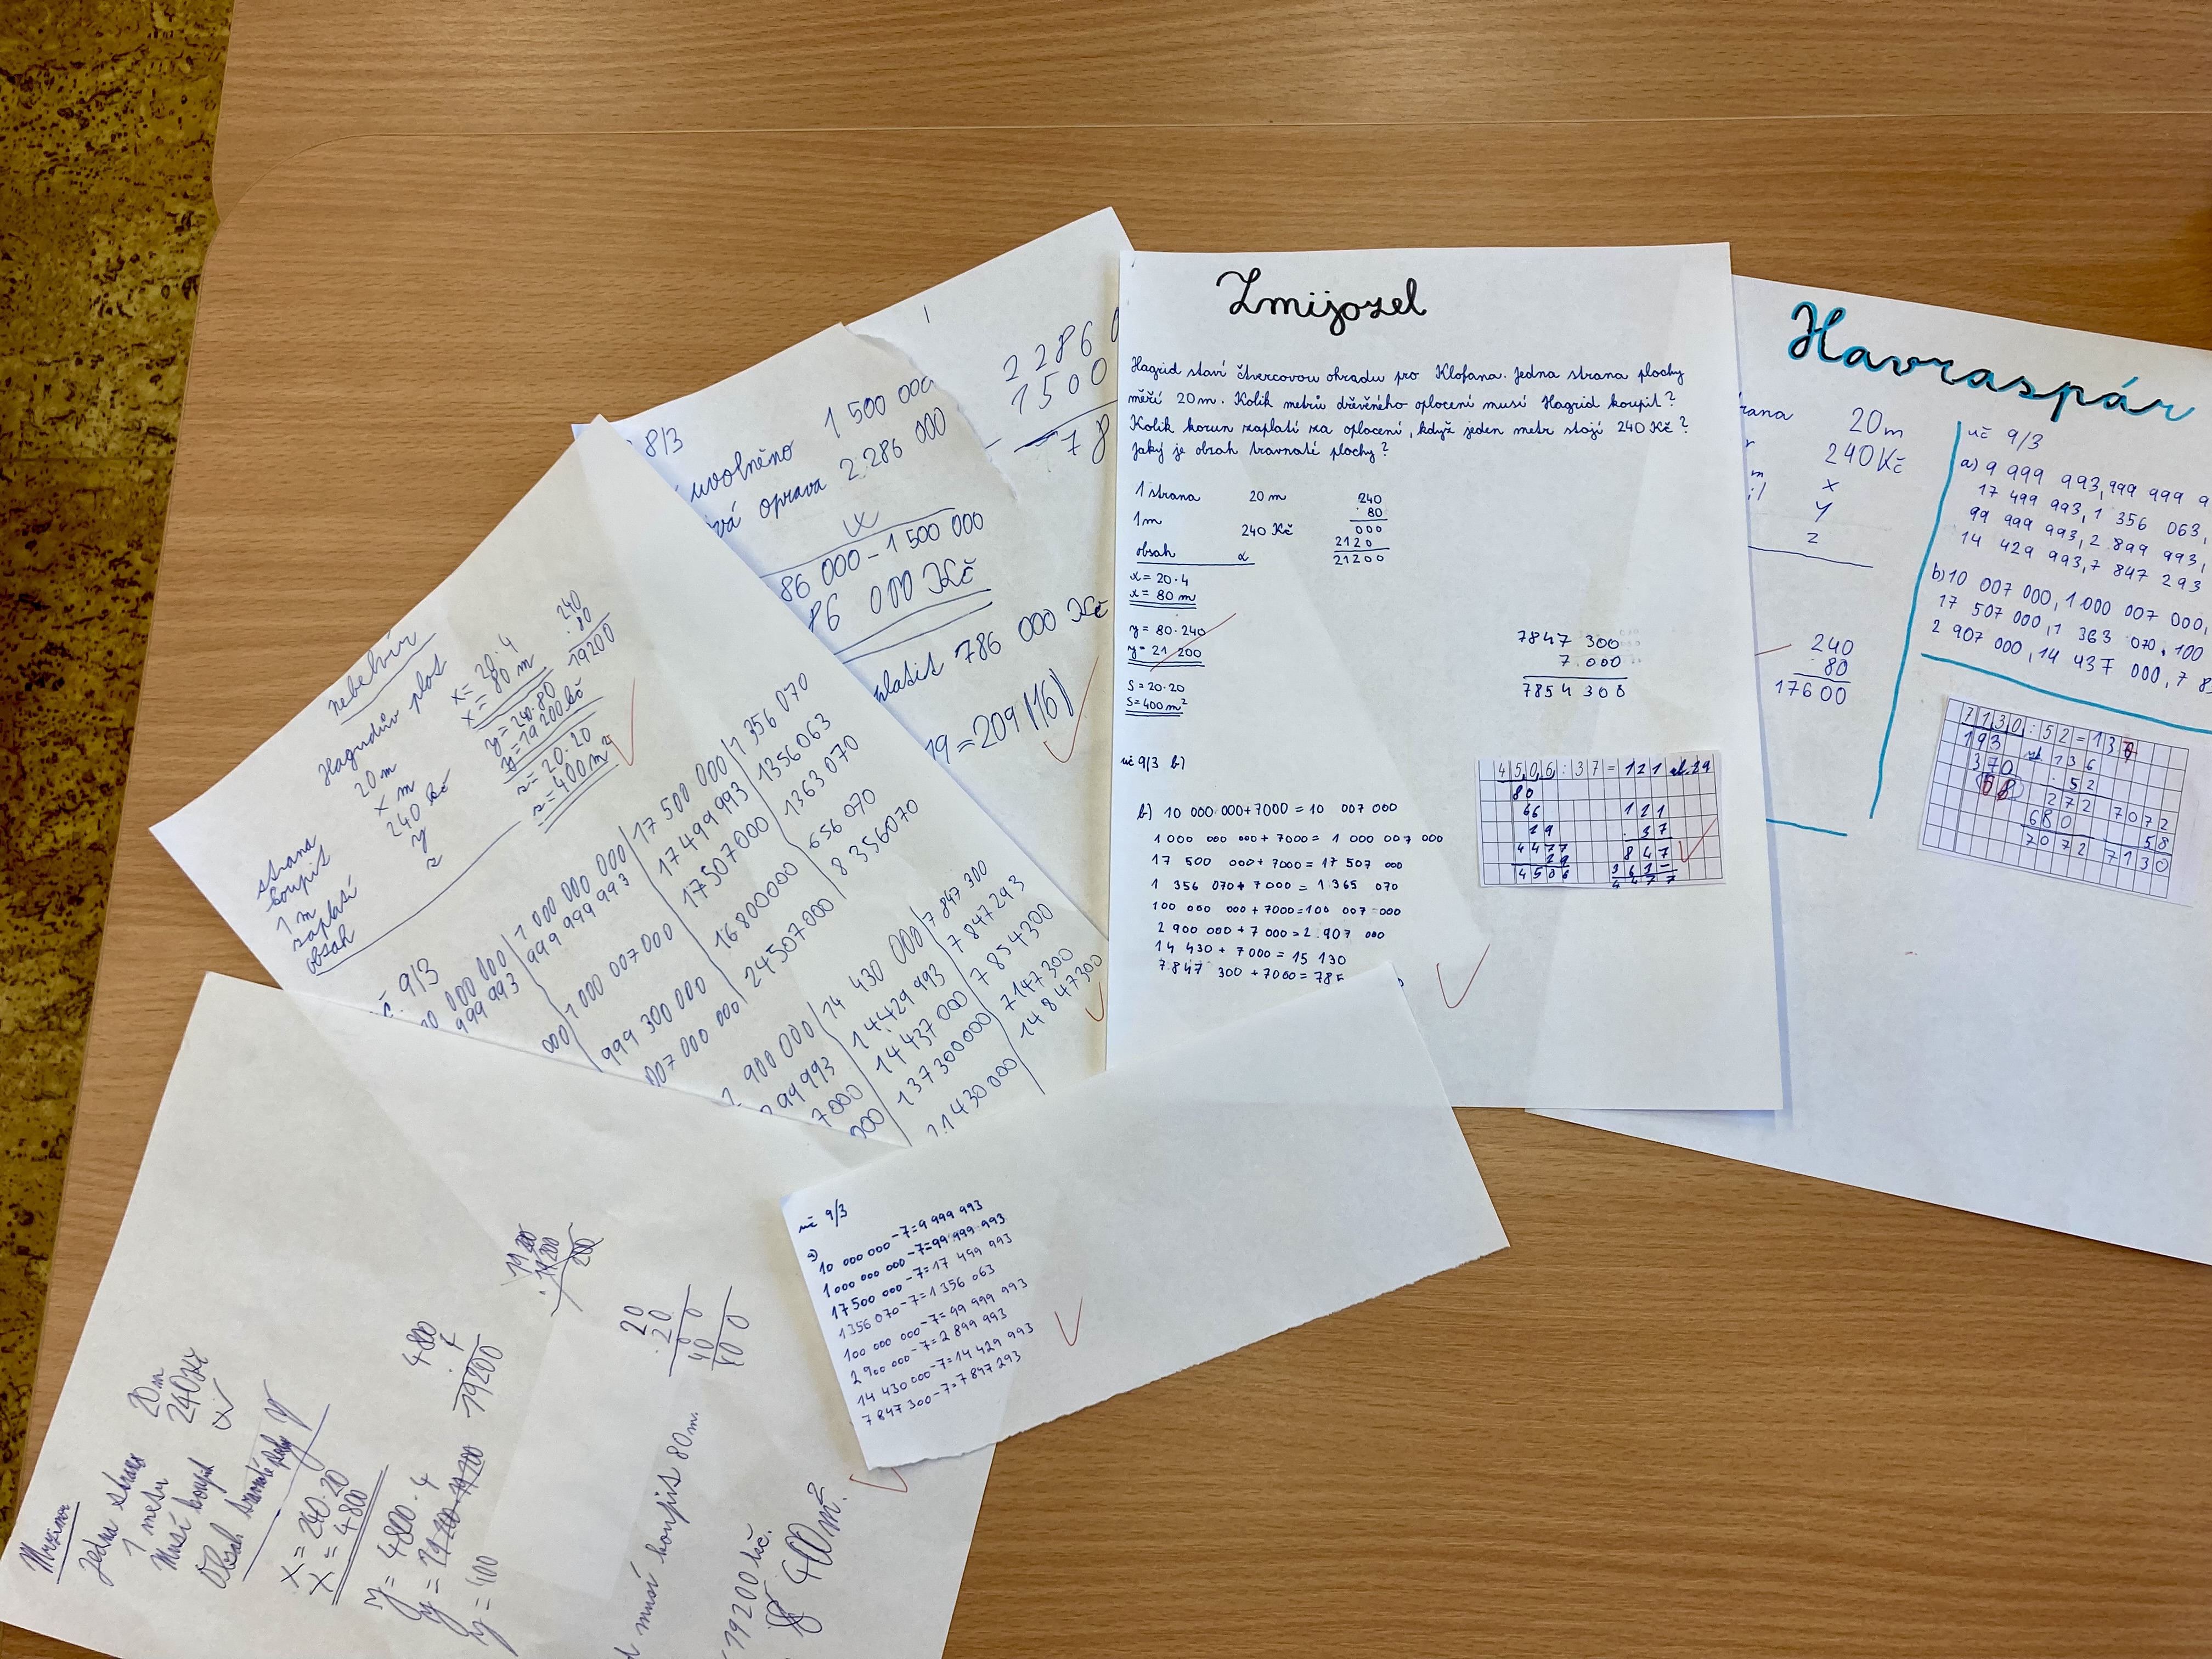 Zmijozel
Hagrid staví čtvercovou ohradu pro Klofana. Jedna strana plochy
měří 20 m. Kolik metrů dřevěného oplocení musí Hagrid koupit?
Kolik korun zaplatí za oplocení, když jeden metr stojí 240 Kč?
Jaký je obsah travnaté plochy?
1 strana 20 m
1m 240 Kč
obsah
x = 20·4
x = 80 m
y = 80·240
y = 21 200
S = 20·20
S = 400 m²
240
·80
000
2120
21200
7847 300
7 000
7854 300
uč 9/3 b)
b) 10 000 000+7000 = 10 007 000
1 000 000 000 + 7000 = 1 000 007 000
17 500 000+7000 = 17 507 000
1 356 070+ 7 000 = 1 365 070
100 000 000+7000=100 007 000
2 900 000 + 7 000 = 2 907 000
14 430 + 7000 = 15 130
7 847 300 +7000= 785
4506:37=121 zb.29
80
66
29
4477
29
4506
121
·37
847
363
4477
Havraspár
20m
240Kč
x
y
z
240
·80
17600
uč 9/3
a) 9 999 993, 999 999 9
17 499 993, 1 356 063,
99 999 993, 2 899 993,
14 429 993, 7 847 293
b) 10 007 000, 1 000 007 000,
17 507 000, 1 363 070, 100
2 907 000, 14 437 000, 7 8
7130:52=137
193
370
136
·52
272
680
7072
7072
58
7130
8/3
uvolněno 1 500 000
oprava 2 286 000
x
86 000 - 1 500 000
86 000 Kč
platit 786 000 Kč
19 = 209 (16)
2286 0
1500
78
Nebelvír
Hagridův plot
strana 20 m
koupit x m
1 m 240 kč
zaplatí y
obsah z
x = 20·4
x = 80 m
y = 240·80
y = 19 200 kč
s = 20·20
s = 400 m²
240
·80
19200
č. 9/3
000 000
999 993
1 000 000 000
999 999 993
000
1 000 007 000
999 300 000
007 000 000
17 500 000
17 499 993
17507000
16800000
24507000
1 356 070
1356063
1363070
656 070
8 356070
900 000
99 993
7000
14 430 000
14429 993
14 437 000
13730000
21430000
7 847 300
7 847 293
7 854300
7147 300
14 847300
uč 9/3
a)
10 000 000-7=9 999 993
1 000 000 000-7=99 999 993
17 500 000-7=17 499 993
1356 070-7=1 356 063
100 000 000-7=99 999 993
2 900 000-7=2 899 993
14 430 000-7=14 429 993
7 847 300-7=7 847 293
Mrzimor
Jedna strana 20m
1 metr 240Kč
Musí koupit x
Obsah travnaté y
x = 240·20
x = 4800
y = 4800·4
y = 400
4800
·4
19200
20
·20
00
40
400
musí koupit 80m.
19200 kč.
400m².